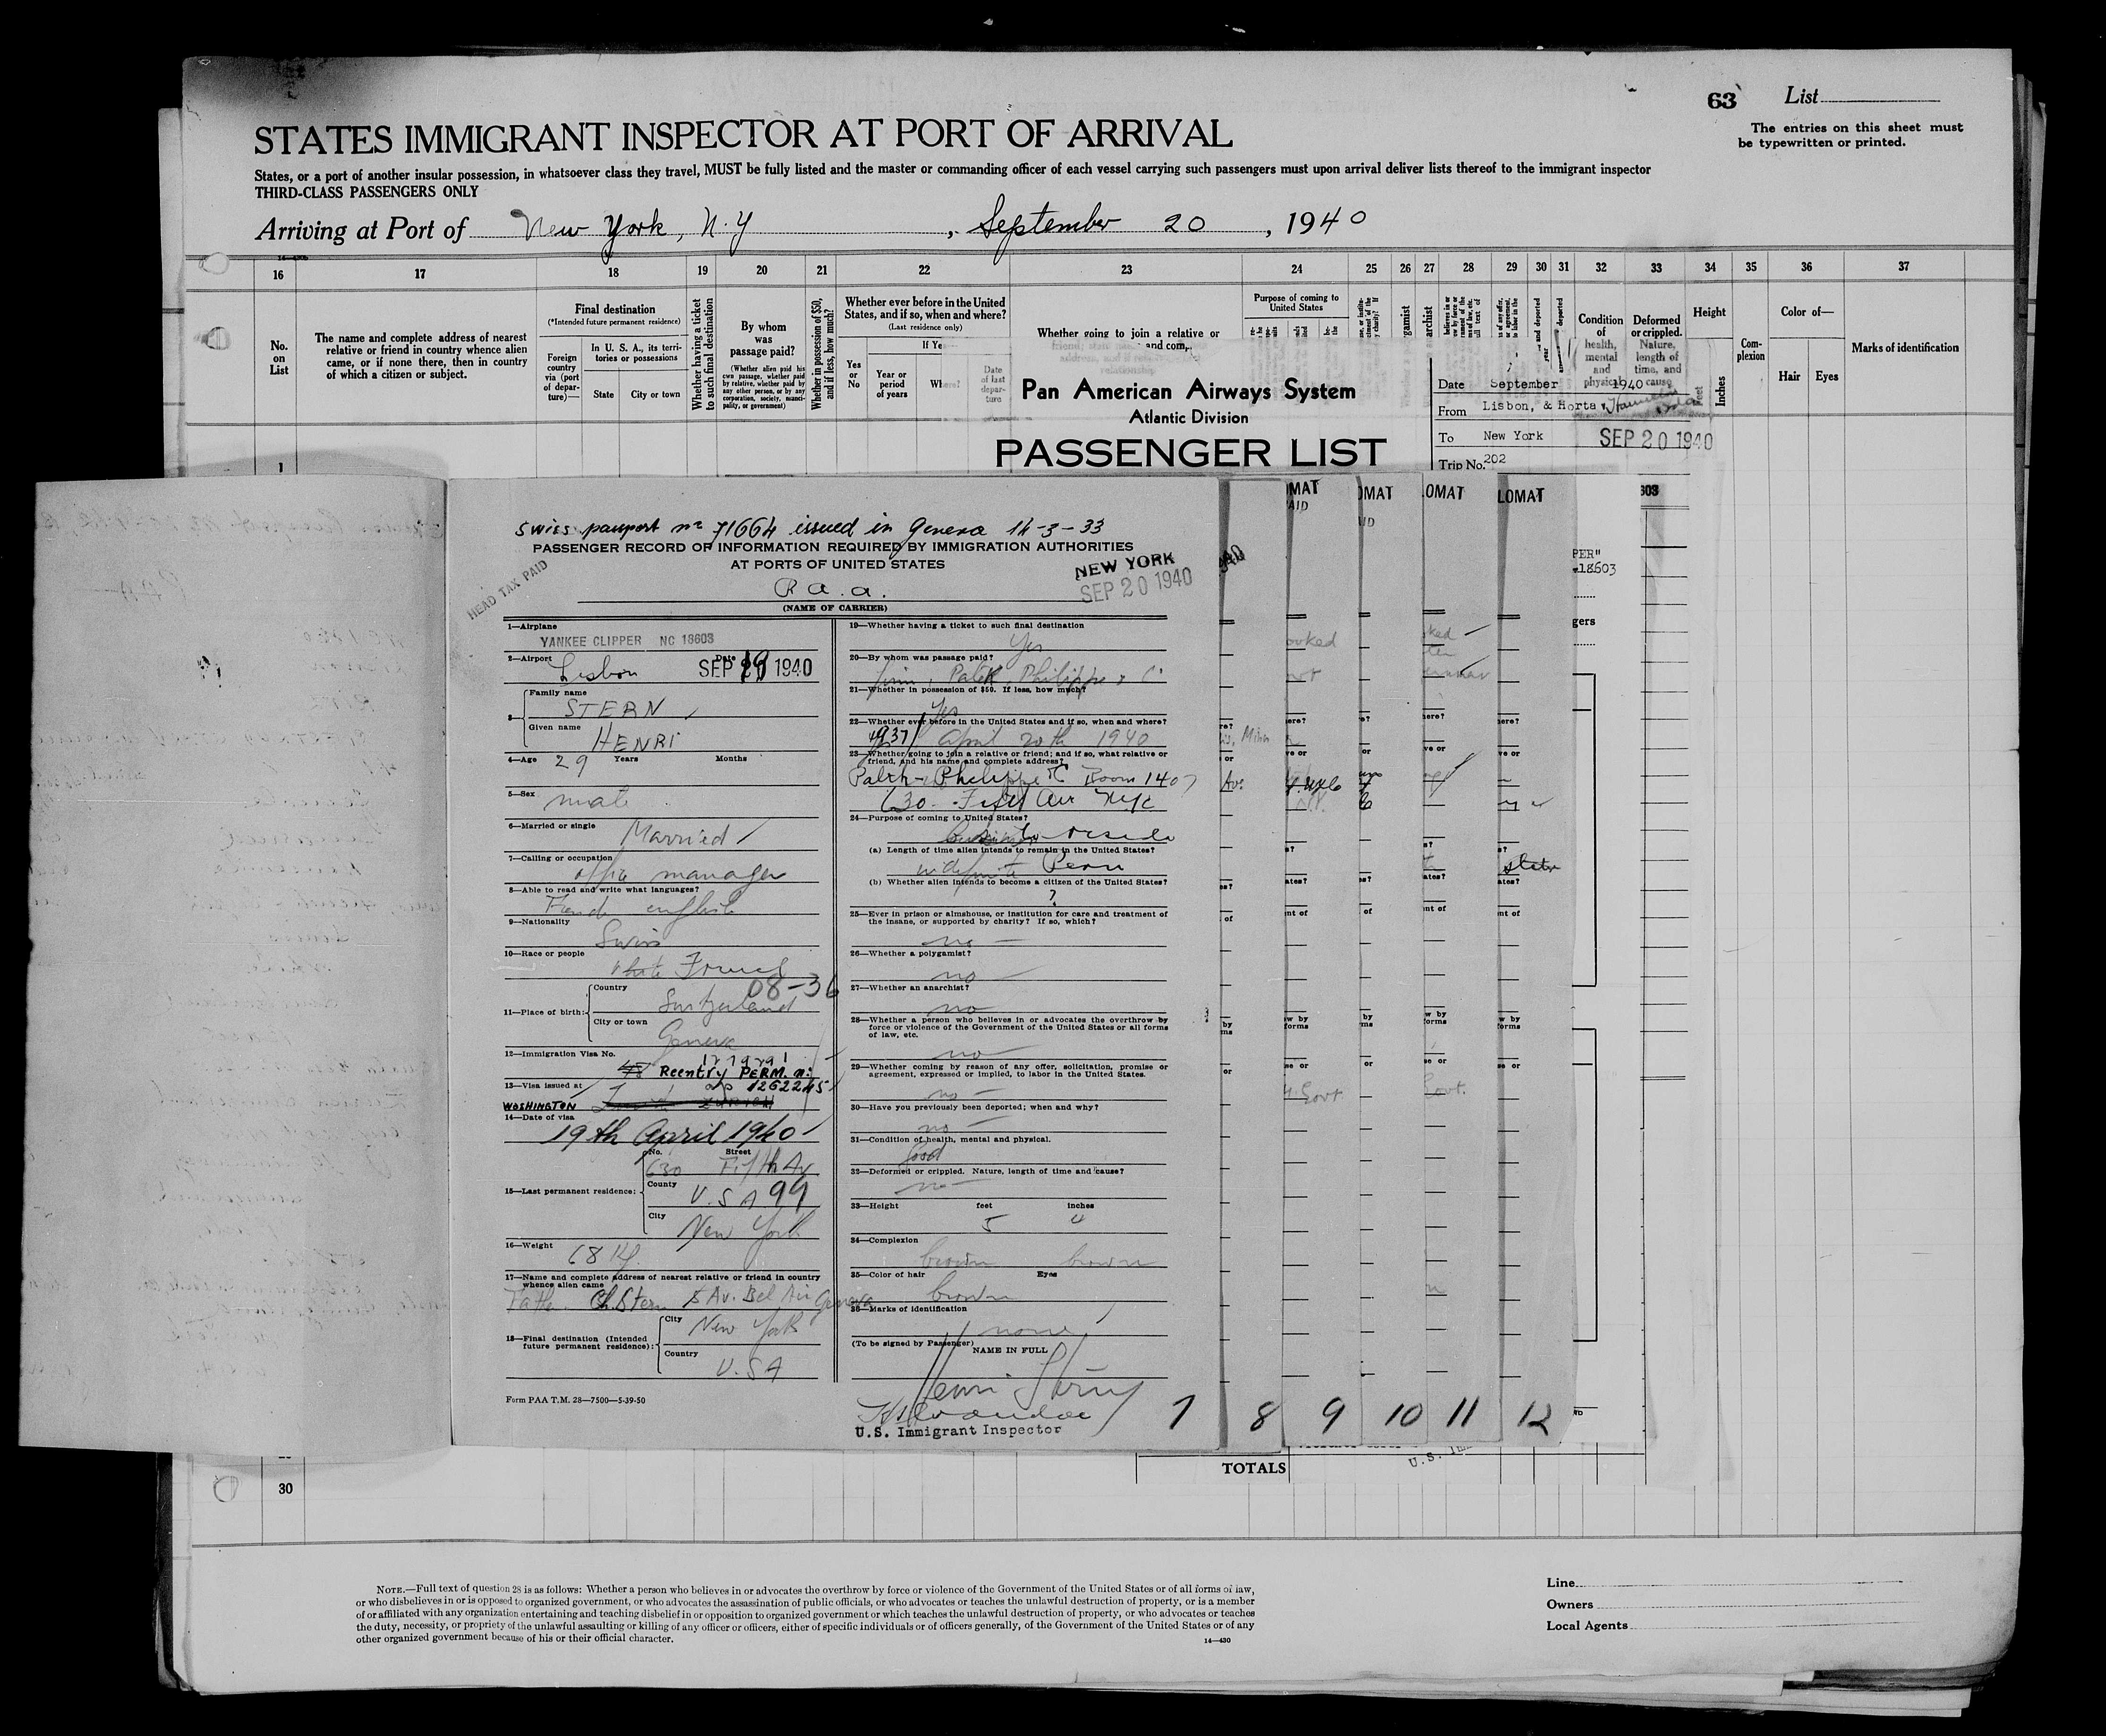 63 List
The entries on this sheet must
be typewritten or printed.
STATES IMMIGRANT INSPECTOR AT PORT OF ARRIVAL
States, or a port of another insular possession, in whatsoever class they travel, MUST be fully listed and the master or commanding officer of each vessel carrying such passengers must upon arrival deliver lists thereof to the immigrant inspector
THIRD-CLASS PASSENGERS ONLY
Arriving at Port of New York, N.Y, September 20, 1940
16 17 18 19 20 21 22 23 24 25 26 27 28 29 30 31 32 33 34 35 36 37
No.
on
List
The name and complete address of nearest
relative or friend in country whence alien
came, or if none there, then in country
of which a citizen or subject.
Final destination
(*Intended future permanent residence)
Foreign
country
via (port
of depar-
ture)—
In U. S. A., its terri-
tories or possessions
State City or town
Whether having a ticket
to such final destination
By whom
was
passage paid?
(Whether alien paid his
own passage, whether paid
by relative, whether paid
by any other person, or by any
corporation, society, munici-
pality, or government)
Whether in possession of $50,
and if less, how much?
Whether ever before in the United
States, and if so, when and where?
(Last residence only)
Yes
or
No
If Ye
Year or
period
of years
Where?
Date
of last
depar-
ture
Whether going to join a relative or
Purpose of coming to
United States
Condition
of
health,
mental
and
physical
Deformed
or crippled.
Nature,
length of
time, and
cause
Height
Feet
Inches
Com-
plexion
Color of—
Hair Eyes
Marks of identification
Pan American Airways System
Atlantic Division
PASSENGER LIST
Date September 1940
From Lisbon, & Horta
To New York SEP 20 1940
Trip No. 202
1
Swiss passport no 71664 issued in Geneva 14-3-33
PASSENGER RECORD OF INFORMATION REQUIRED BY IMMIGRATION AUTHORITIES
AT PORTS OF UNITED STATES
HEAD TAX PAID
NEW YORK
SEP 20 1940
P a. a.
(NAME OF CARRIER)
1—Airplane
YANKEE CLIPPER NC 18603
2—Airport Date
Lisbon SEP 19 1940
3—
Family name
STERN
Given name
HENRI
4—Age 29 Years Months
5—Sex
male
6—Married or single
Married
7—Calling or occupation
office manager
8—Able to read and write what languages?
French english
9—Nationality
Swiss
10—Race or people
white French
08-36
11—Place of birth:
Country
Switzerland
City or town
Geneva
12—Immigration Visa No.
Reentry PERM. n:
13—Visa issued at
1262245
WASHINGTON
14—Date of visa
19th April 1940
15—Last permanent residence:
No. Street
630 Fifth Av
County
U.S.A 99
City
New York
16—Weight
68 Kg
17—Name and complete address of nearest relative or friend in country
whence alien came
Father Ch. Stern 5 Av. Bel Air Geneva
18—Final destination (Intended
future permanent residence):
City
New York
Country
U.S.A
Form PAA T.M. 28—7500—5-39-50
19—Whether having a ticket to such final destination
Yes
20—By whom was passage paid?
firm, Patek, Philippe & C
21—Whether in possession of $50. If less, how much?
Yes
22—Whether ever before in the United States and if so, when and where?
1937 April 20th 1940
23—Whether going to join a relative or friend; and if so, what relative or
friend, and his name and complete address?
Patek-Philippe Room 1407
630 Fifth Av NYC
24—Purpose of coming to United States?
to reside
(a) Length of time alien intends to remain in the United States?
indefinite Perm
(b) Whether alien intends to become a citizen of the United States?
?
25—Ever in prison or almshouse, or institution for care and treatment of
the insane, or supported by charity? If so, which?
no
26—Whether a polygamist?
no
27—Whether an anarchist?
no
28—Whether a person who believes in or advocates the overthrow by
force or violence of the Government of the United States or all forms
of law, etc.
no
29—Whether coming by reason of any offer, solicitation, promise or
agreement, expressed or implied, to labor in the United States.
no
30—Have you previously been deported; when and why?
no
31—Condition of health, mental and physical.
good
32—Deformed or crippled. Nature, length of time and cause?
no
33—Height feet inches
5
34—Complexion
brown brown
35—Color of hair Eyes
brown
36—Marks of identification
none
(To be signed by Passenger)
NAME IN FULL
Henri Stern
U.S. Immigrant Inspector
7 8 9 10 11 12
TOTALS
30
NOTE.—Full text of question 28 is as follows: Whether a person who believes in or advocates the overthrow by force or violence of the Government of the United States or of all forms of law,
or who disbelieves in or is opposed to organized government, or who advocates the assassination of public officials, or who advocates or teaches the unlawful destruction of property, or is a member
of or affiliated with any organization entertaining and teaching disbelief in or opposition to organized government or which teaches the unlawful destruction of property, or who advocates or teaches
the duty, necessity, or propriety of the unlawful assaulting or killing of any officer or officers, either of specific individuals or of officers generally, of the Government of the United States or of any
other organized government because of his or their official character.
14—430
Line
Owners
Local Agents